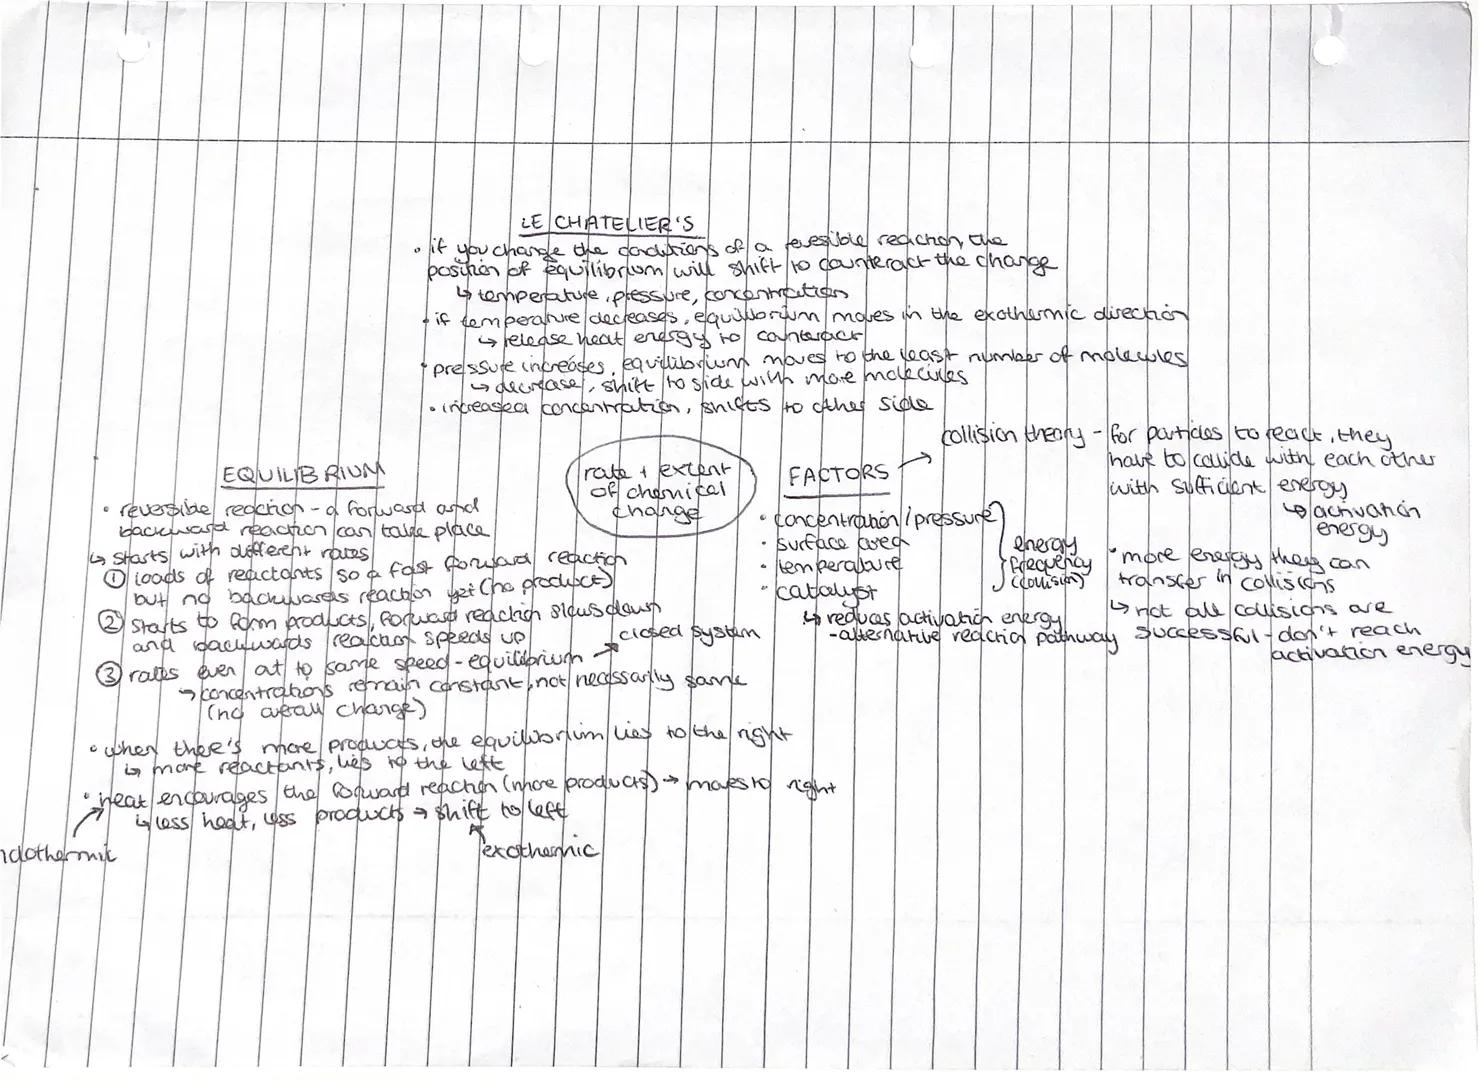 LE CHATELIER'S
• if you change the conditions of a reversible reaction, the
position of equilibrium will shift to counteract the change
↳ temperature, pressure, concentration
• if temperature decreases, equilibrium moves in the exothermic direction
↳ release heat energy to counteract
• pressure increases, equilibrium moves to the least number of molecules
↳ decrease, shift to side with more molecules
• increased concentration, shifts to other side
rate + extent
of chemical
change
EQUILIBRIUM
• reversible reaction - a forward and
backward reaction can take place
↳ starts with different rates
① loads of reactants so a fast forward reaction
but no backwards reaction yet (no product)
② starts to form products, forward reaction slows down
and backwards reaction speeds up
③ rates even out to same speed - equilibrium → closed system
→ concentrations remain constant, not necessarily same
(no overall change)
• when there's more products, the equilibrium lies to the right
↳ more reactants, lies to the left
• heat encourages the forward reaction (more products) → moves to right
↳ less heat, less products → shift to left
ndothermic
exothermic
FACTORS
• concentration / pressure
• surface area
• temperature
• catalyst
energy
frequency
(collision)
↳ reduces activation energy
- alternative reaction pathway
collision theory - for particles to react, they
have to collide with each other
with sufficient energy
↳ activation
energy
• more energy they can
transfer in collisions
↳ not all collisions are
successful - don't reach
activation energy